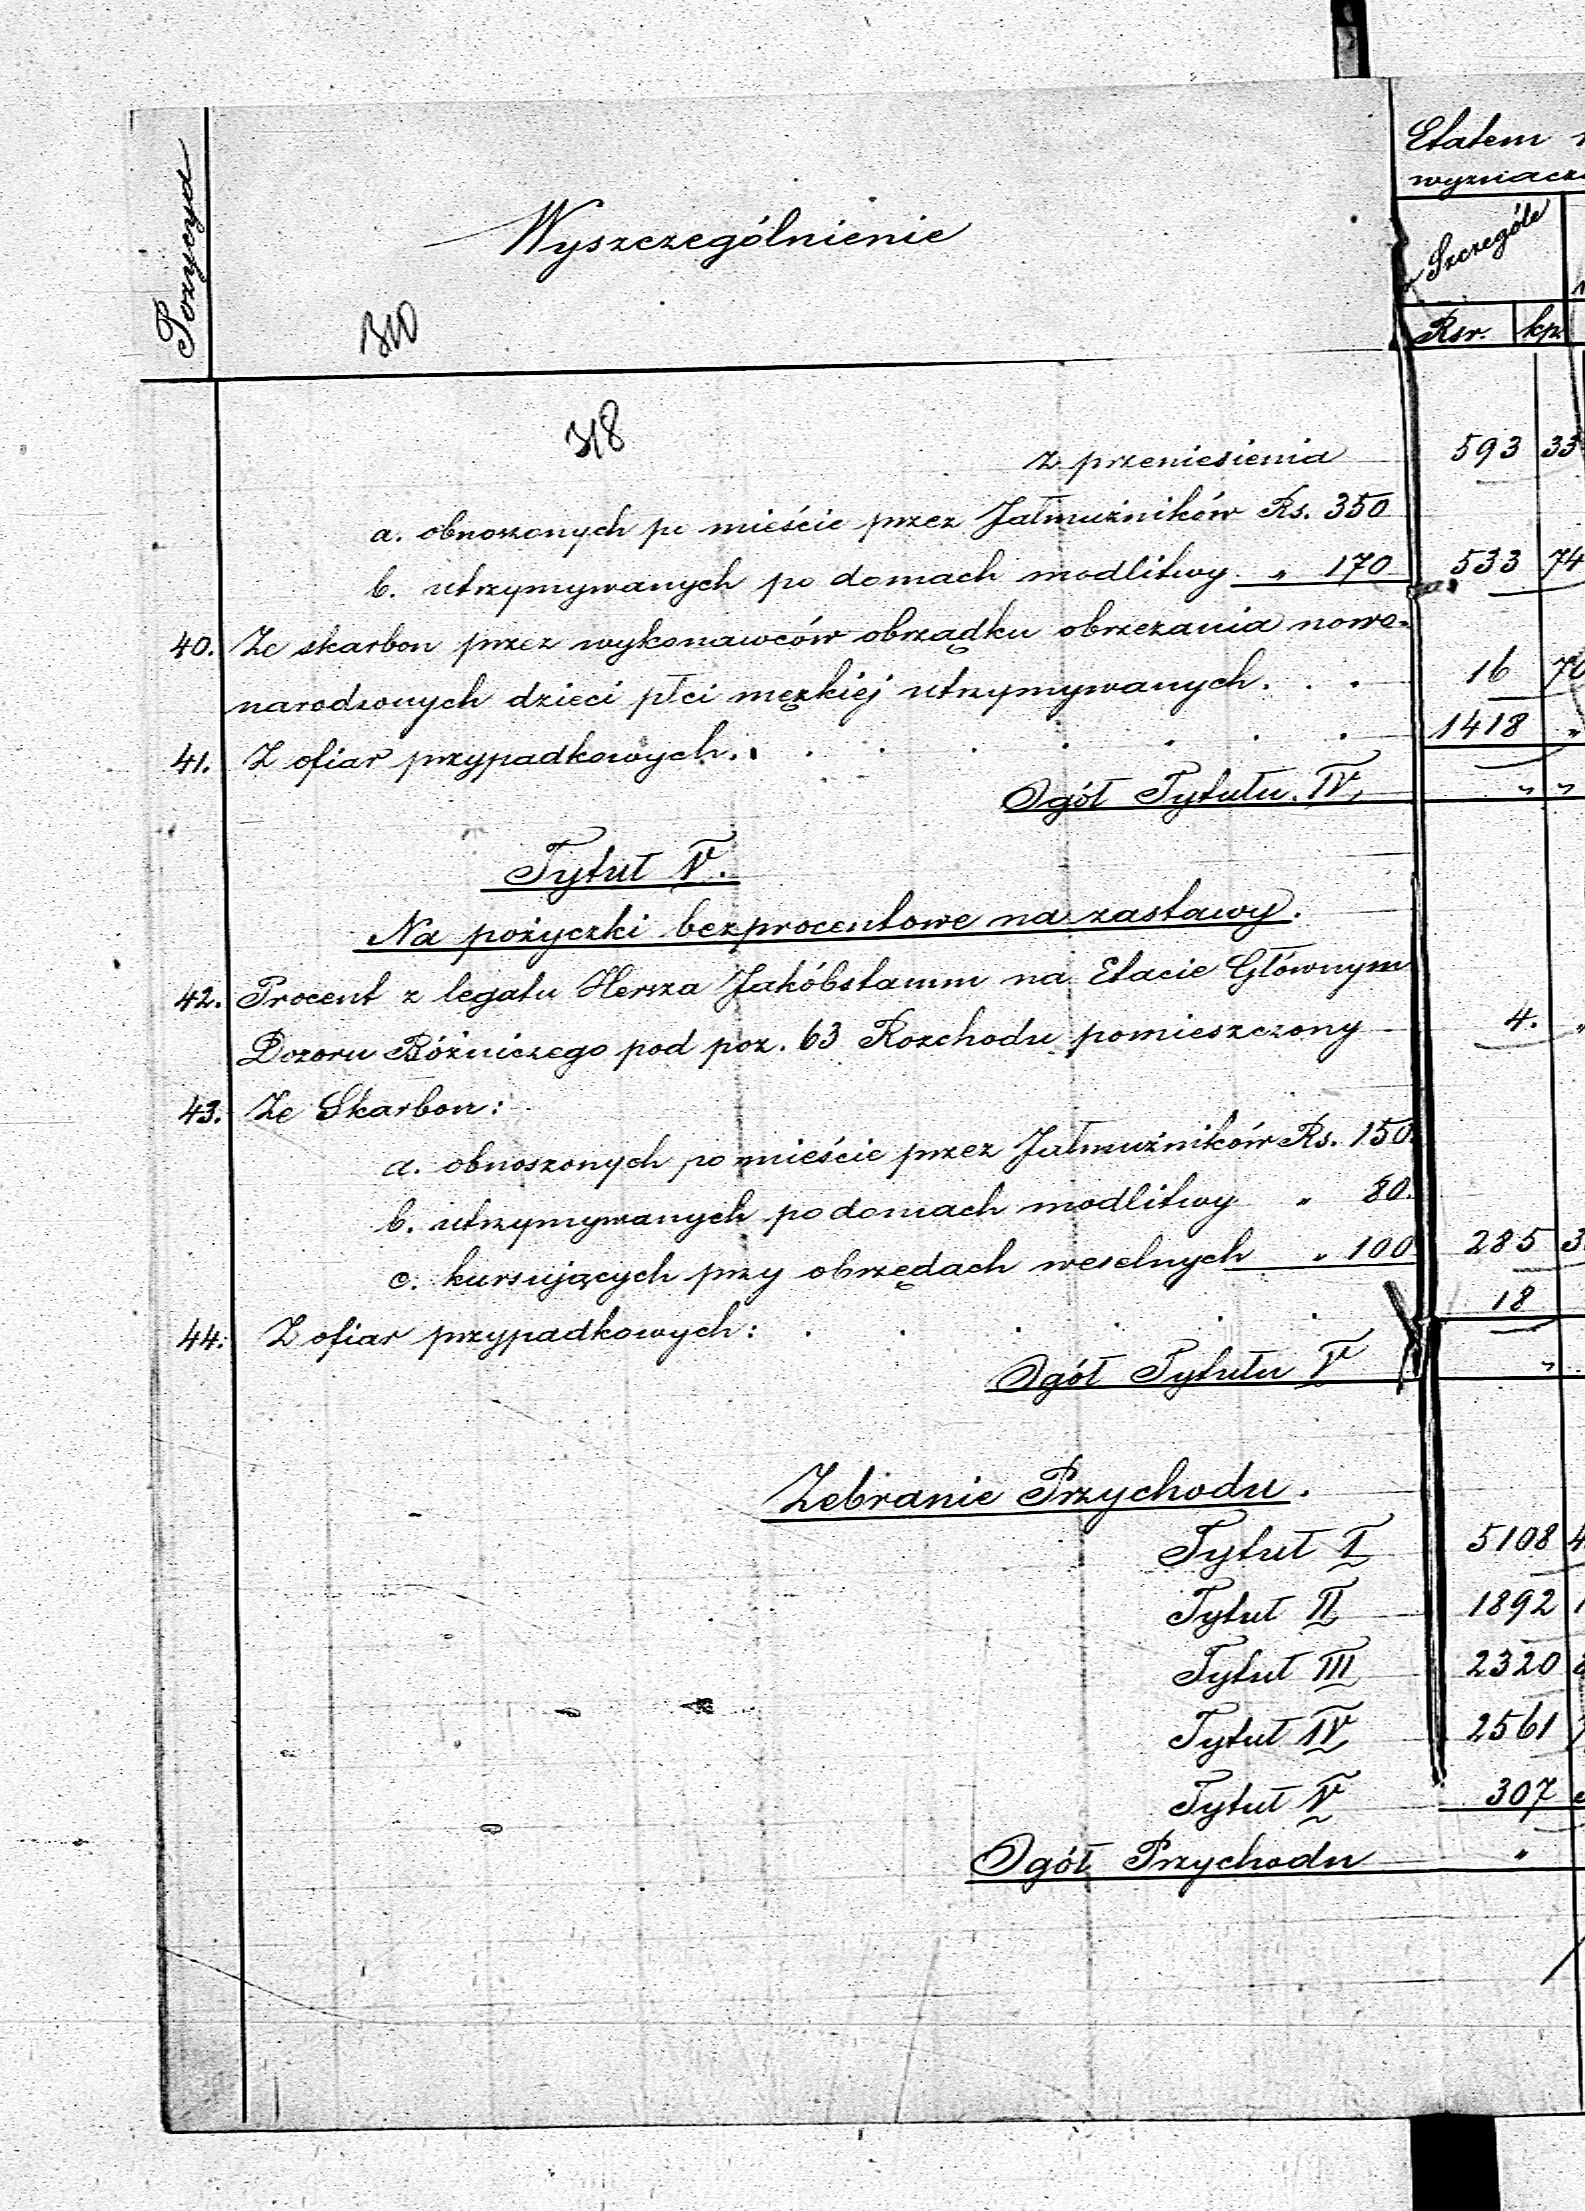 Etatem
Pozycyd
Wyszczególnienie
Szczególe
310
Rsr. kp.
318
z przeniesienia 593 33
a. obnoszonych po mieście przez Jałmużników Rs. 350
b. utrzymywanych po domach modlitwy " 170 533 74
40. Ze skarbon przez wykonawców obrządku obrzezania nowo-
narodzonych dzieci płci męzkiej utrzymywanych . . . 16 70
41. Z ofiar przypadkowych . . . . . . . . 1418 "
Ogół Tytułu IV, " "
Tytuł V.
Na pożyczki bezprocentowe na zastawy.
42. Procent z legatu Hersza Jakóbstamm na Etacie Głównym
Dozoru Bóźniczego pod poz. 63 Rozchodu pomieszczony 4. "
43. Ze Skarbon:
a. obnoszonych po mieście przez Jałmużników Rs. 150.
b. utrzymywanych po domach modlitwy " 80.
c. kursujących przy obrzędach weselnych " 100 285 3
44. Z ofiar przypadkowych: . . . . . . 18
Ogół Tytułu V "
Zebranie Przychodu.
Tytuł I 5108 4
Tytuł II 1892 1
Tytuł III 2320
Tytuł IV 2561
Tytuł V 307
Ogół Przychodu "